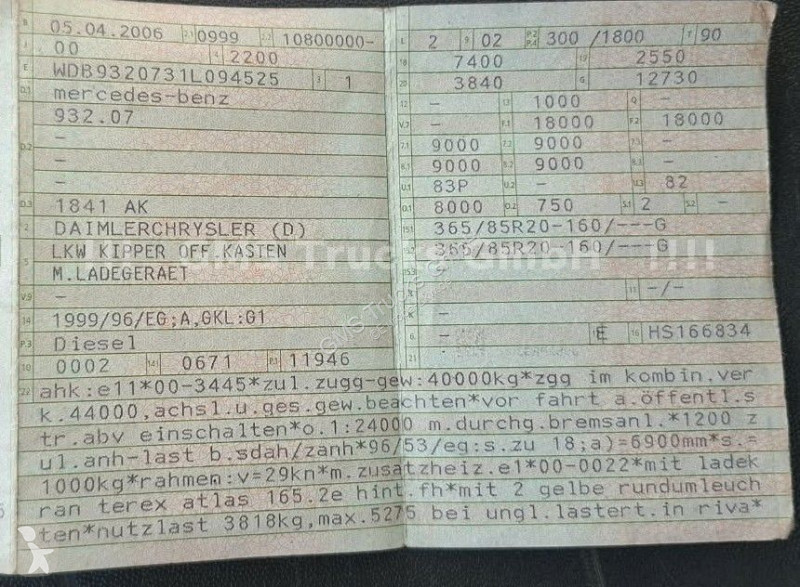 B 05.04.2006 2.1 0999 2.2 10800000-
J 00 4 2200
E WDB9320731L094525 3 1
D.1 mercedes-benz
932.07
D.2 -
-
-
D.3 1841 AK
2 DAIMLERCHRYSLER (D)
5 LKW KIPPER OFF.KASTEN
M.LADEGERAET
V.9 -
14 1999/96/EG;A,GKL:G1
P.3 Diesel
10 0002 14.1 0671 P.1 11946
L 2 9 02 P.2 P.4 300 /1800 T 90
18 7400 19 2550
20 3840 G 12730
12 - 13 1000 Q -
V.7 - F.1 18000 F.2 18000
7.1 9000 7.2 9000 7.3 -
8.1 9000 8.2 9000 8.3 -
U.1 83P U.2 - U.3 82
O.1 8000 O.2 750 S.1 2 S.2 -
15.1 365/85R20-160/---G
365/85R20-160/---G
15.3
R - 11 -/-
K -
6 - E 16 HS166834
21
22 ahk:e11*00-3445*zul.zugg-gew:40000kg*zgg im kombin.ver
k.44000,achsl.u.ges.gew.beachten*vor fahrt a.öffentl.s
tr.abv einschalten*o.1:24000 m.durchg.bremsanl.*1200 z
ul.anh-last b.sdah/zanh*96/53/eg:s.zu 18;a)=6900mm*s.=
1000kg*rahmen:v=29kn*m.zusatzheiz.e1*00-0022*mit ladek
ran terex atlas 165.2e hint.fh*mit 2 gelbe rundumleuch
ten*nutzlast 3818kg,max.5275 bei ungl.lastert.in riva*